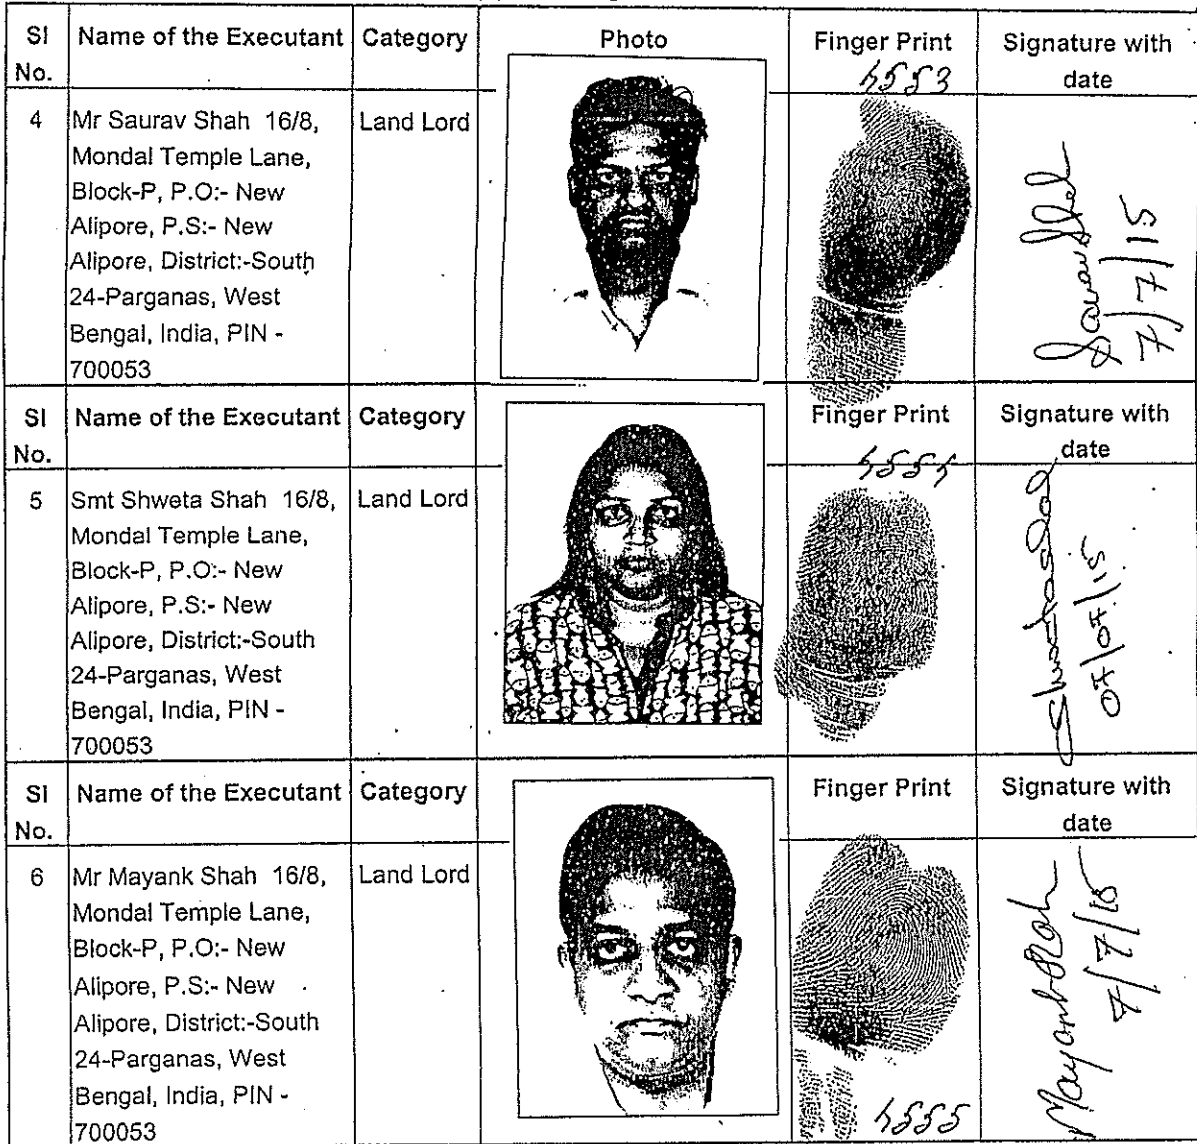 Sl No. Name of the Executant Category Photo Finger Print Signature with date
4553
4 Mr Saurav Shah 16/8, Land Lord
Mondal Temple Lane,
Block-P, P.O:- New
Alipore, P.S:- New
Alipore, District:-South
24-Parganas, West
Bengal, India, PIN -
700053
Saurav Shah
7/7/15
Sl No. Name of the Executant Category Finger Print Signature with date
4554
5 Smt Shweta Shah 16/8, Land Lord
Mondal Temple Lane,
Block-P, P.O:- New
Alipore, P.S:- New
Alipore, District:-South
24-Parganas, West
Bengal, India, PIN -
700053
Shweta Shah
07/07/15
Sl No. Name of the Executant Category Finger Print Signature with date
6 Mr Mayank Shah 16/8, Land Lord
Mondal Temple Lane,
Block-P, P.O:- New
Alipore, P.S:- New
Alipore, District:-South
24-Parganas, West
Bengal, India, PIN -
700053
4555
Mayank Shah
7/7/15